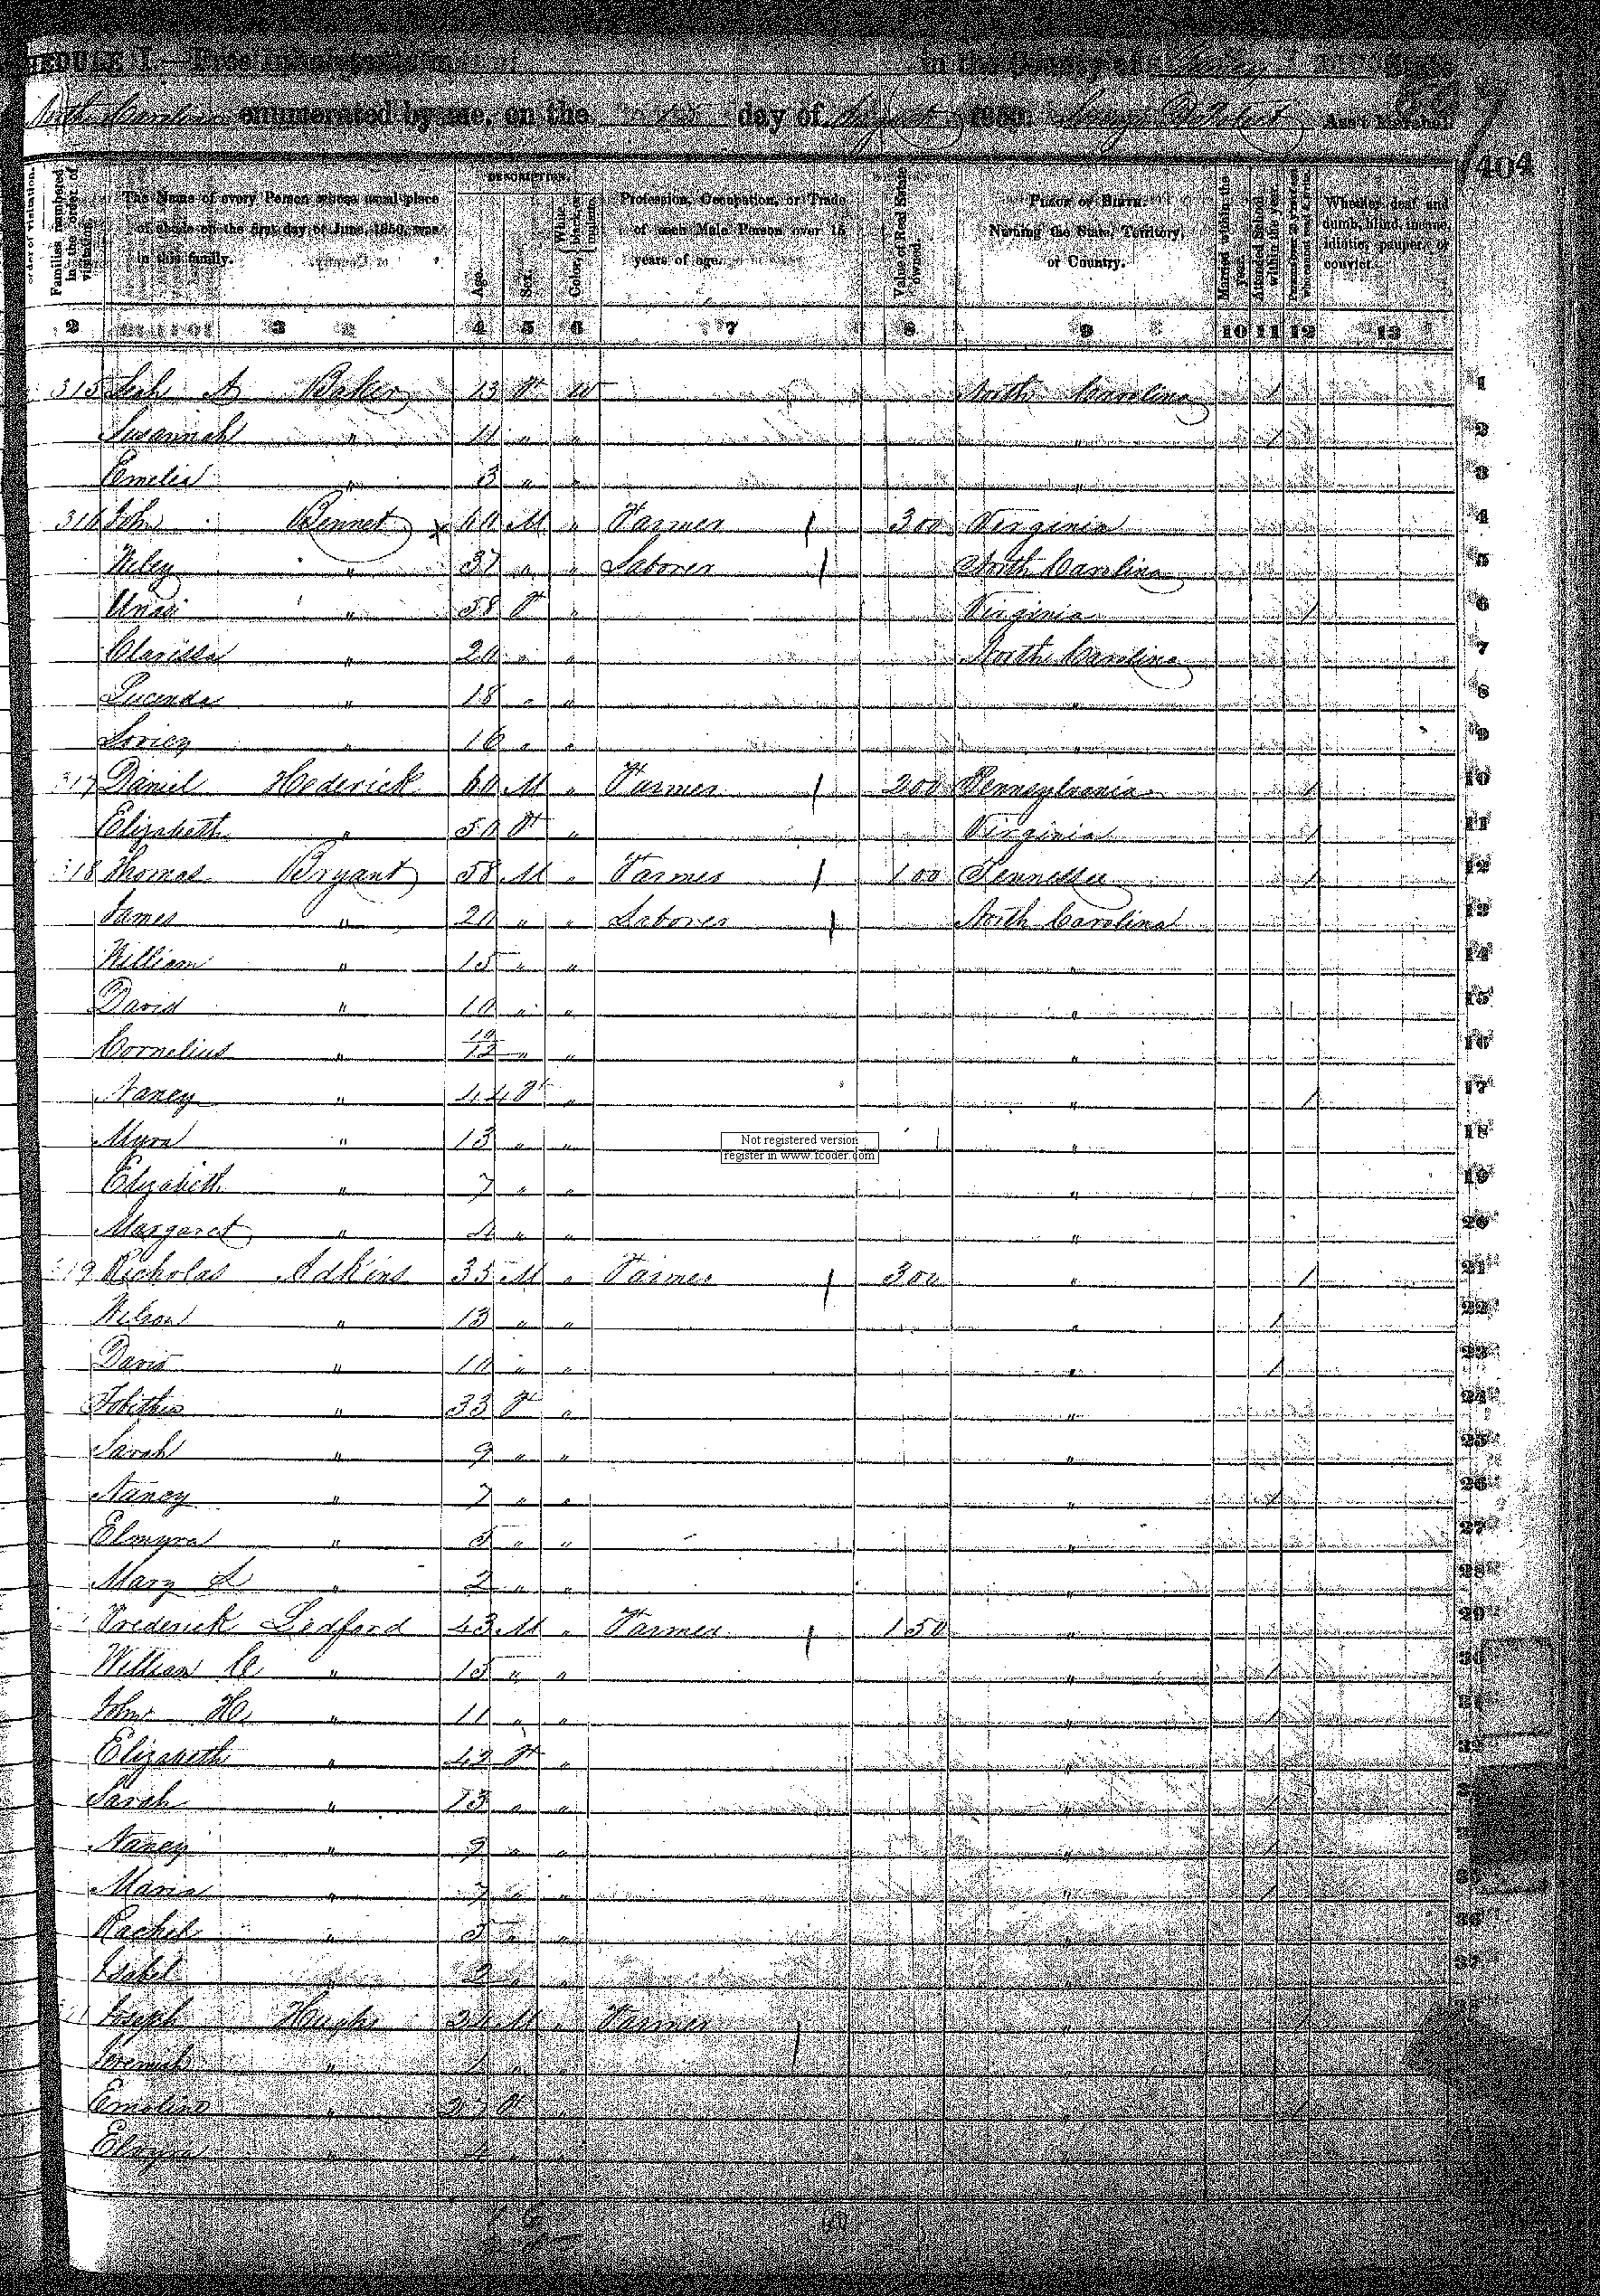 SCHEDULE I.—Free Inhabitants in in the County of State
North Carolina enumerated by me, on the day of August 1850. Ass't Marshal
404
order of visitation.
Families numbered in the order of visitation.
The Name of every Person whose usual place of abode on the first day of June, 1850, was in this family.
DESCRIPTION.
Age.
Sex.
Color, White, black, or mulatto.
Profession, Occupation, or Trade of each Male Person over 15 years of age.
Value of Real Estate owned.
PLACE OF BIRTH. Naming the State, Territory, or Country.
Married within the year.
Attended School within the year.
Persons over 20 y'rs of age who cannot read & write.
Whether deaf and dumb, blind, insane, idiotic, pauper, or convict.
2 3 4 5 6 7 8 9 10 11 12 13
315 Leah A Baker 13 F W North Carolina 1 1
Susannah " 11 " " " 1 2
Emelia " 3 " " " 3
316 John Bennet x 60 M " Farmer 300 Virginia 4
Wiley " 37 " " Laborer North Carolina 5
" 58 F " Virginia 1 6
Clarissa " 20 " " North Carolina 7
Lucinda " 18 " " " 8
" 16 " " " 9
317 Daniel Hederick 60 M " Farmer 200 Pennsylvania 1 10
Elizabeth " 50 F " Virginia 1 11
318 Thomas Bryant 58 M " Farmer 100 Tennessee 1 12
James " 20 " " Laborer North Carolina 13
William " 15 " " " 14
David " 10 " " " 15
Cornelius " 10/12 " " " 16
Nancy " 44 F " " 1 17
Myra " 13 " " " 18
Not registered version
register in www.fcoder.com
Elizabeth " 7 " " " 19
Margaret " 4 " " " 20
319 Nicholas Adkins 35 M " Farmer 300 " 1 21
Wilson " 13 " " " 1 22
David " 10 " " " 1 23
Tobitha " 33 F " " 24
Sarah " 9 " " " 25
Nancy " 7 " " " 1 26
Elmyra " 5 " " " 27
Mary L " 2 " " " 28
Frederick Ledford 43 M " Farmer 150 " 29
William C " 15 " " " 1 30
John H " 11 " " " 1 31
Elizabeth " 42 F " " 32
Sarah " 13 " " " 1
Nancy " 9 " " " 1
Maria " 7 " " " 1 35
Rachel " 5 " " " 36
Isabel " 2 " " " 37
Joseph Hughs M " Farmer " 1
Jeremiah " 1 " " "
Emeline " 27 F " " 1
" 4 " " "